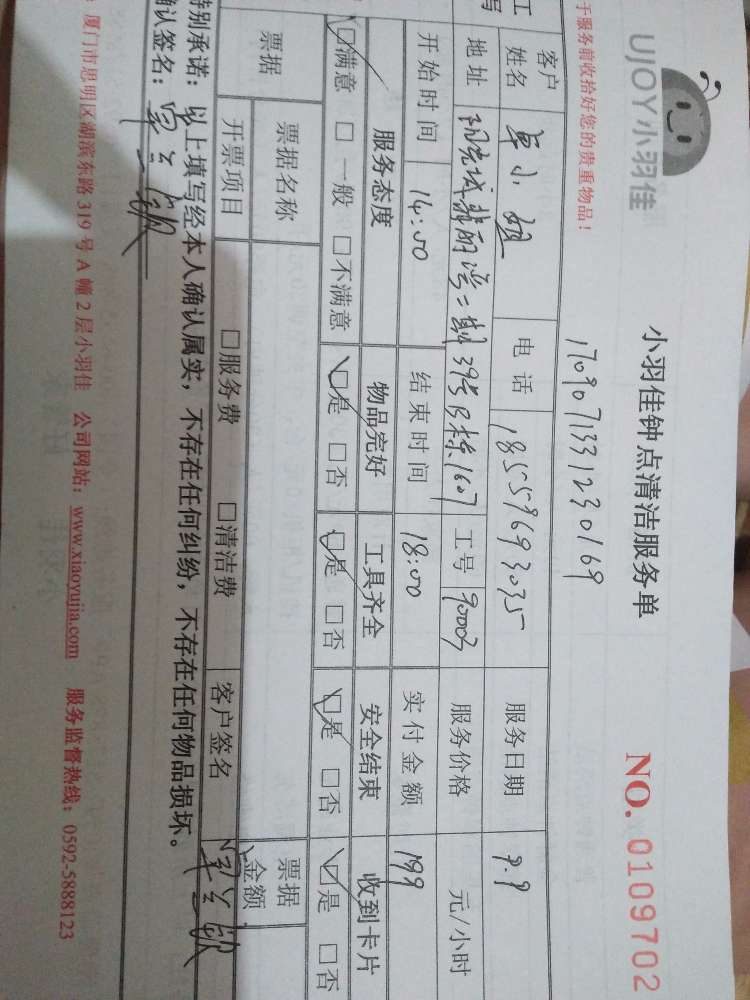 UJOY小羽佳
小羽佳钟点清洁服务单
NO. 0109702
于服务前收拾好您的贵重物品！
1709071331230169
工 客户姓名 单小姐 电话 18559693035 服务日期 9.9
写 地址 二期39号B栋1607 工号 90003 服务价格 元/小时
开始时间 14:00 结束时间 18:00 实付金额 199
服务态度 物品完好 工具齐全 安全结束 收到卡片
☑满意 □一般 □不满意 ☑是 □否 ☑是 □否 ☑是 □否 ☑是 □否
票据 票据名称 票据金额
开票项目 □服务费 □清洁费 客户签名
特别承诺：以上填写经本人确认属实，不存在任何纠纷，不存在任何物品损坏。
确认签名：
厦门市思明区湖滨东路319号A幢2层小羽佳 公司网站：www.xiaoyujia.com 服务监督热线：0592-5888123